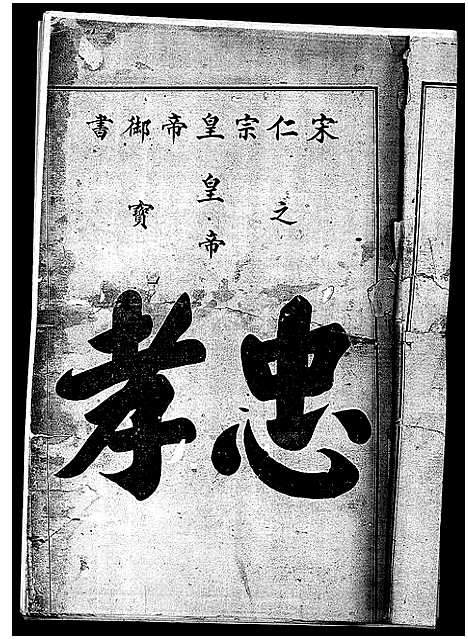 宋仁宗皇帝御書
之皇帝寶
忠孝